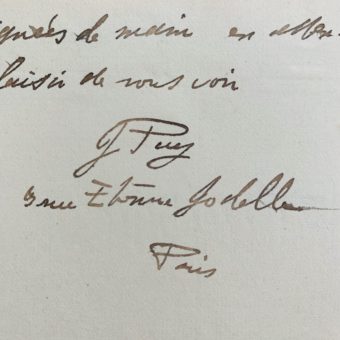 ignées de main en atten-
laisir de vous voir
J Puy
3 rue Etienne Jodelle
Paris